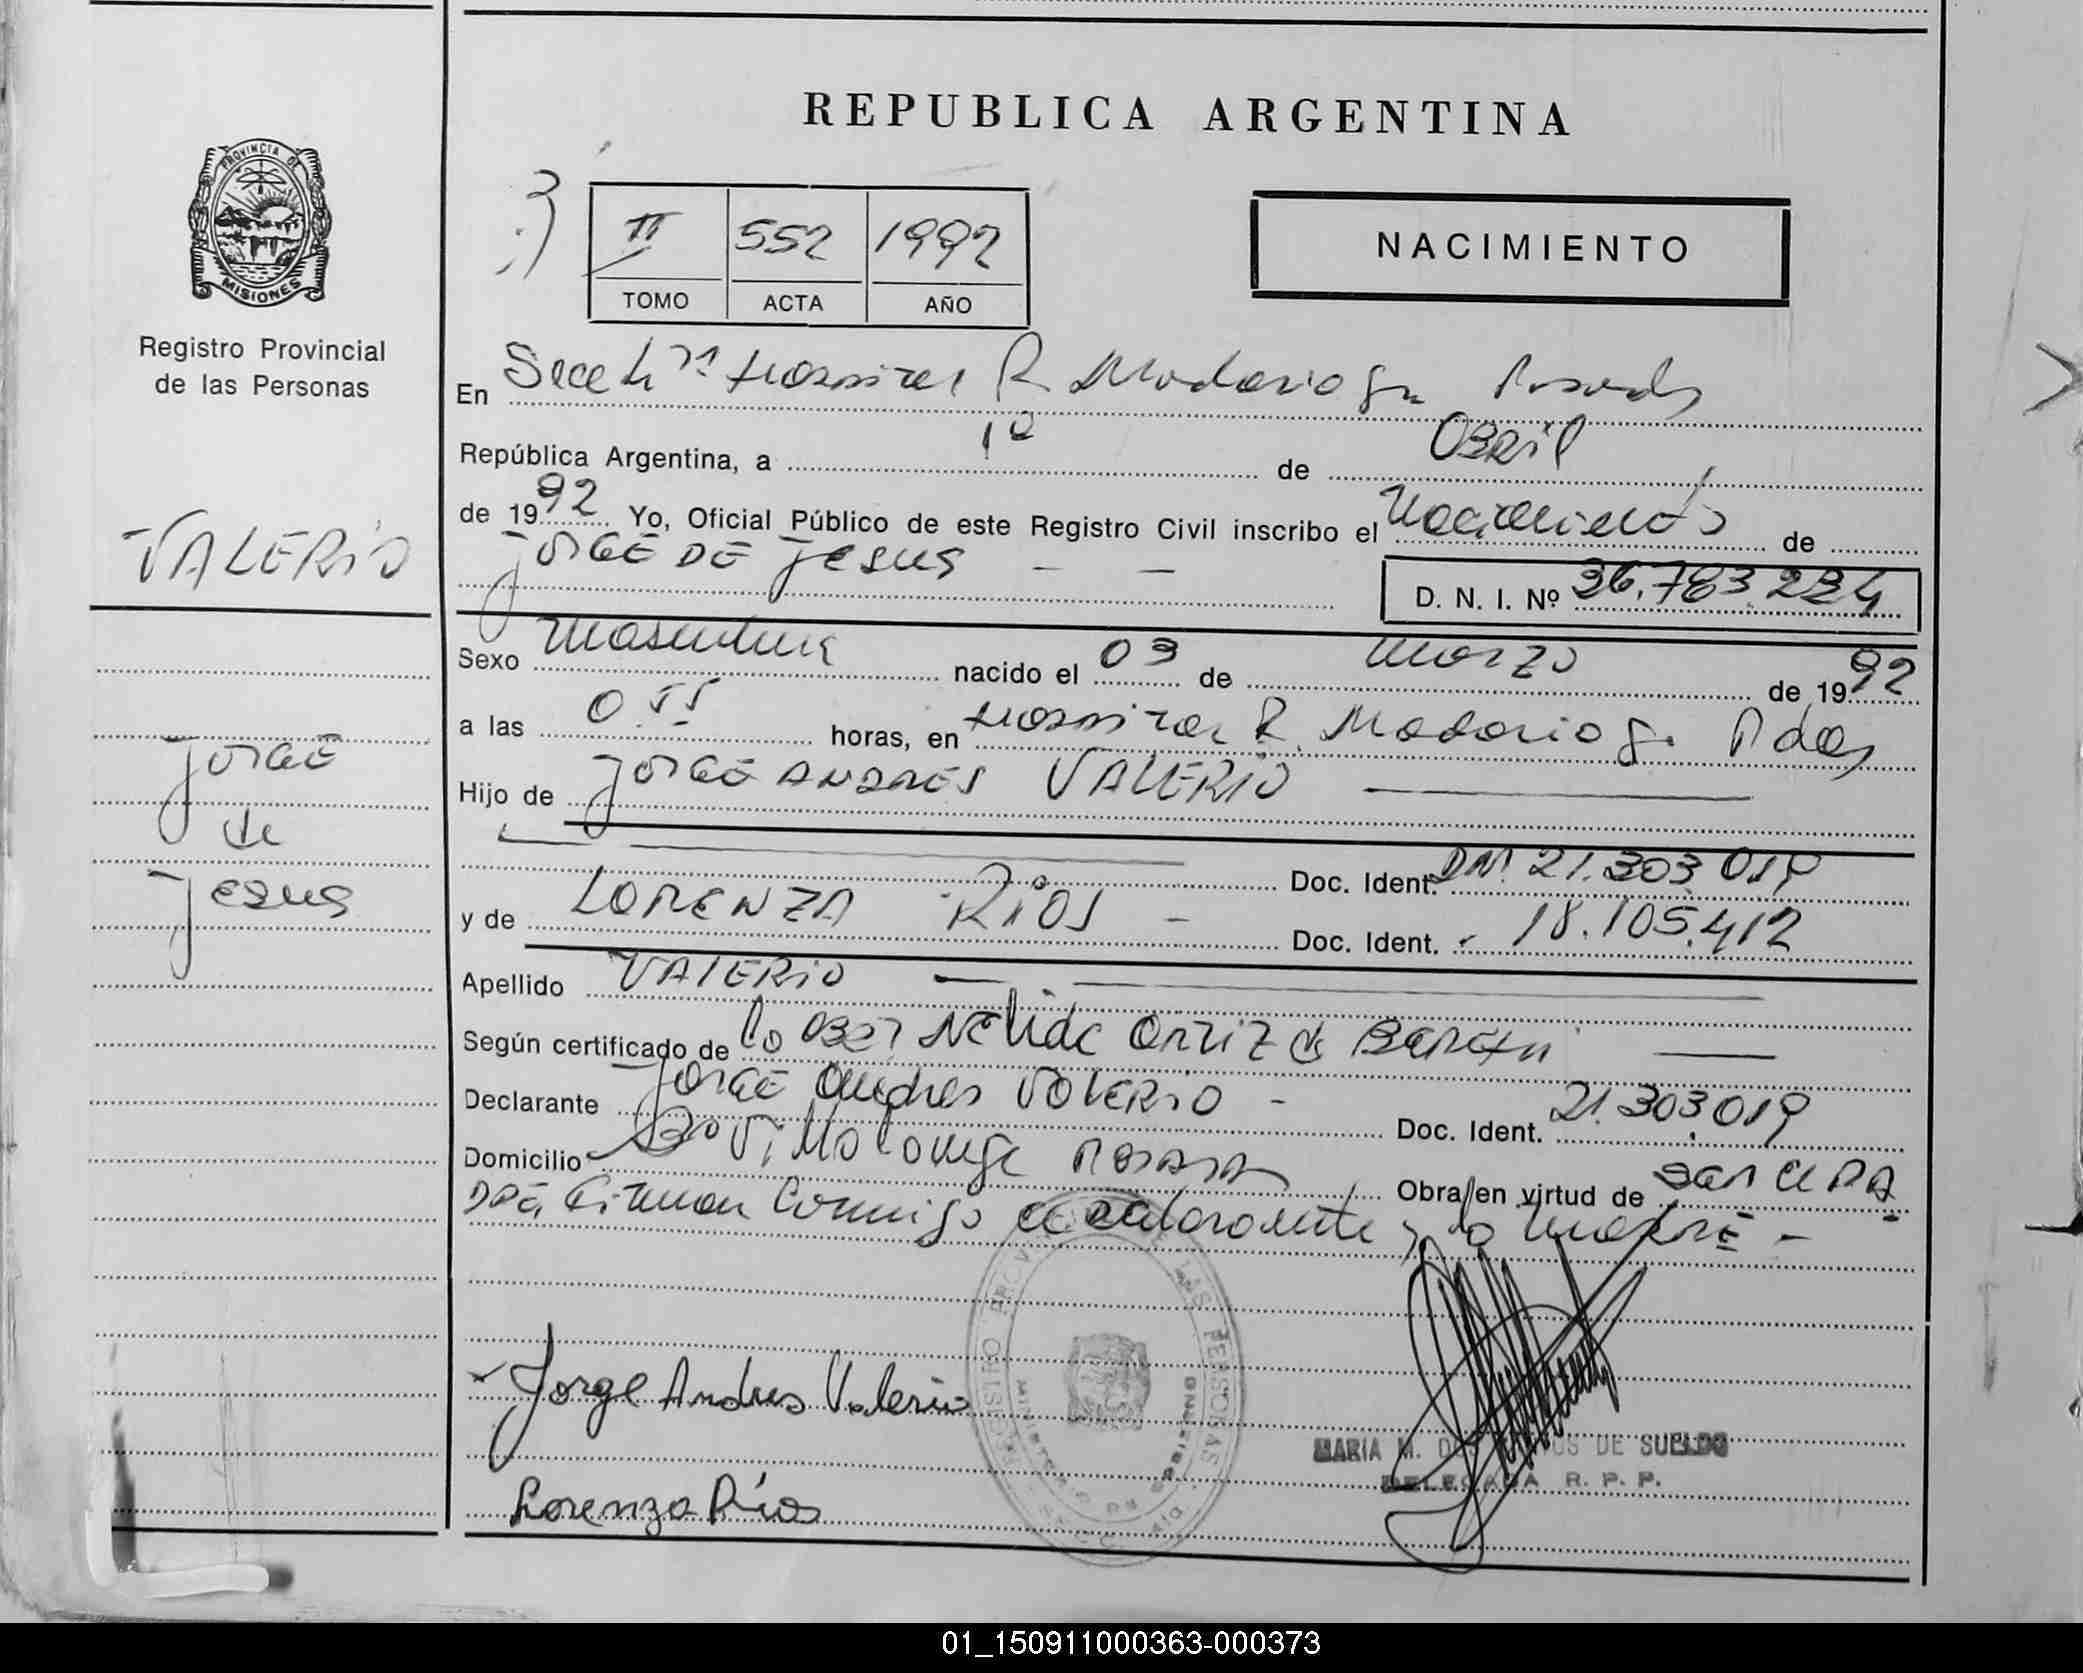 REPUBLICA ARGENTINA
PROVINCIA DE
MISIONES
Registro Provincial
de las Personas
VALERIO
Jorge
de
Jesus
II 552 1992
TOMO ACTA AÑO
NACIMIENTO
En Secc Hospital R Madariaga Posadas
República Argentina, a 1º de Abril
de 1992 Yo, Oficial Público de este Registro Civil inscribo el Nacimiento de
JORGE DE Jesus - -
D. N. I. Nº 36.783.224
Sexo Masculino nacido el 09 de Marzo de 1992
a las 0.55 horas, en Hospital R. Madariaga Pdas
Hijo de JORGE ANDRES VALERIO
Doc. Ident. DNI 21.303.019
y de LORENZA RIOS - Doc. Ident. 18.105.412
Apellido VALERIO
Según certificado de la Obst Nelida Ortiz de
Declarante JORGE Andres VALERIO - Doc. Ident. 21.303.019
Domicilio Bº Villalonga POSADAS Obra en virtud de
Firman Conmigo el declarante y la madre -
Jorge Andres Valerio
Lorenza Ríos
REGISTRO PROVINCIAL DE LAS PERSONAS
MINISTERIO DE GOBIERNO
MARIA M. DE SUELDO
DELEGADA R. P. P.
01_150911000363-000373